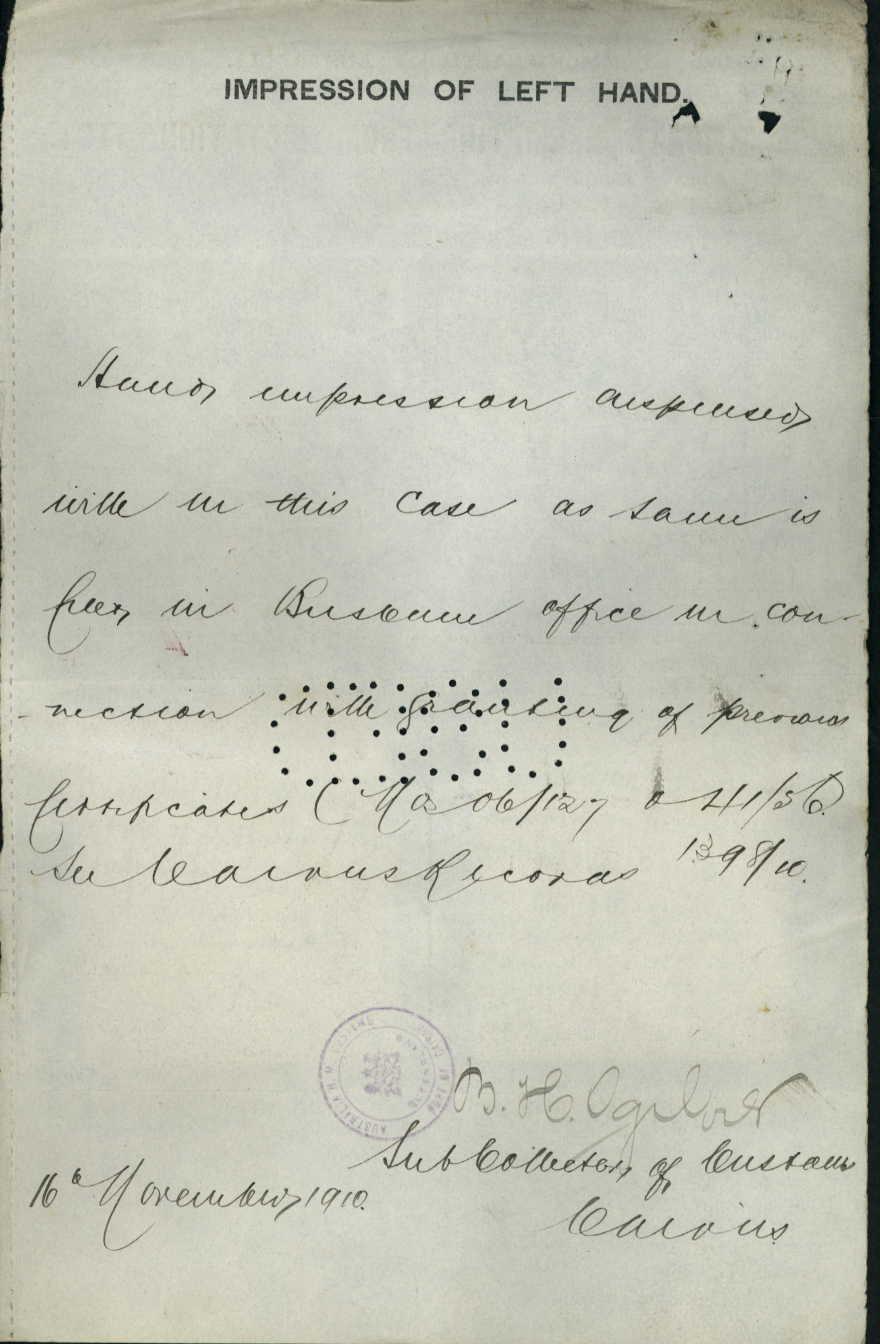 IMPRESSION OF LEFT HAND.
Hand impression dispensed
with in this case as same is
filed in Brisbane office in con-
-nection with granting of previous
Certificates (No 06/127 & 41/56)
See Cairns Records 1398/10.
B. H. Ogilvie
Sub Collector of Customs
16th November 1910.
Cairns.
AUSTRALIA H. M. CUSTOMS